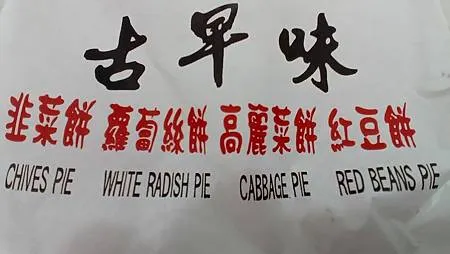 古早味
韭菜餅 蘿蔔絲餅 高麗菜餅 紅豆餅
CHIVES PIE WHITE RADISH PIE CABBAGE PIE RED BEANS PIE